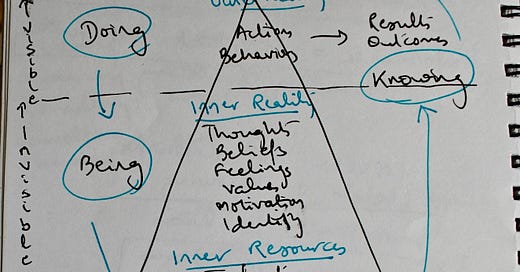 Doing
Actions
Behaviors
Results
Outcomes
Knowing
visible
Inner Reality
Thoughts
Beliefs
Feelings
Values
Motivation
Identity
Being
Invisible
Inner Resources